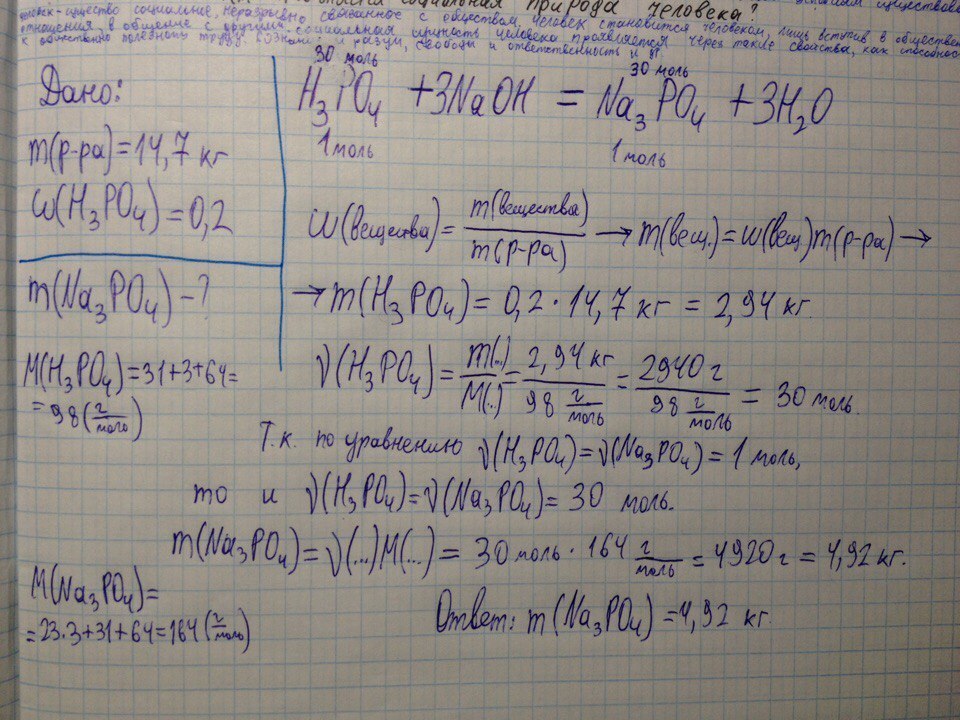 социальная природа человека?
существо социальное, неразрывно связанное с обществом. Человек становится человеком, лишь вступив в
отношения, в общение с другими. Социальная сущность человека проявляется через такие свойства, как способность
к общественно полезному труду, и разум, свобода и ответственность и др.
Дано:
m(р-ра)=14,7 кг
ω(H₃PO₄)=0,2
m(Na₃PO₄)-?
M(H₃PO₄)=31+3+64=
=98(г/моль)
M(Na₃PO₄)=
=23·3+31+64=164(г/моль)
30 моль 30 моль
H₃PO₄ +3NaOH = Na₃PO₄ +3H₂O
1 моль 1 моль
ω(вещества)= m(вещества)/m(р-ра) → m(вещ.)=ω(вещ.)m(р-ра) →
→ m(H₃PO₄)= 0,2·14,7 кг = 2,94 кг.
ν(H₃PO₄)= m(..)/M(..) = 2,94 кг/98 г/моль = 2940 г/98 г/моль = 30 моль.
Т.к. по уравнению ν(H₃PO₄)=ν(Na₃PO₄)= 1 моль,
то и ν(H₃PO₄)=ν(Na₃PO₄)= 30 моль.
m(Na₃PO₄)= ν(...)M(...) = 30 моль · 164 г/моль = 4920 г = 4,92 кг.
Ответ: m(Na₃PO₄)=4,92 кг.